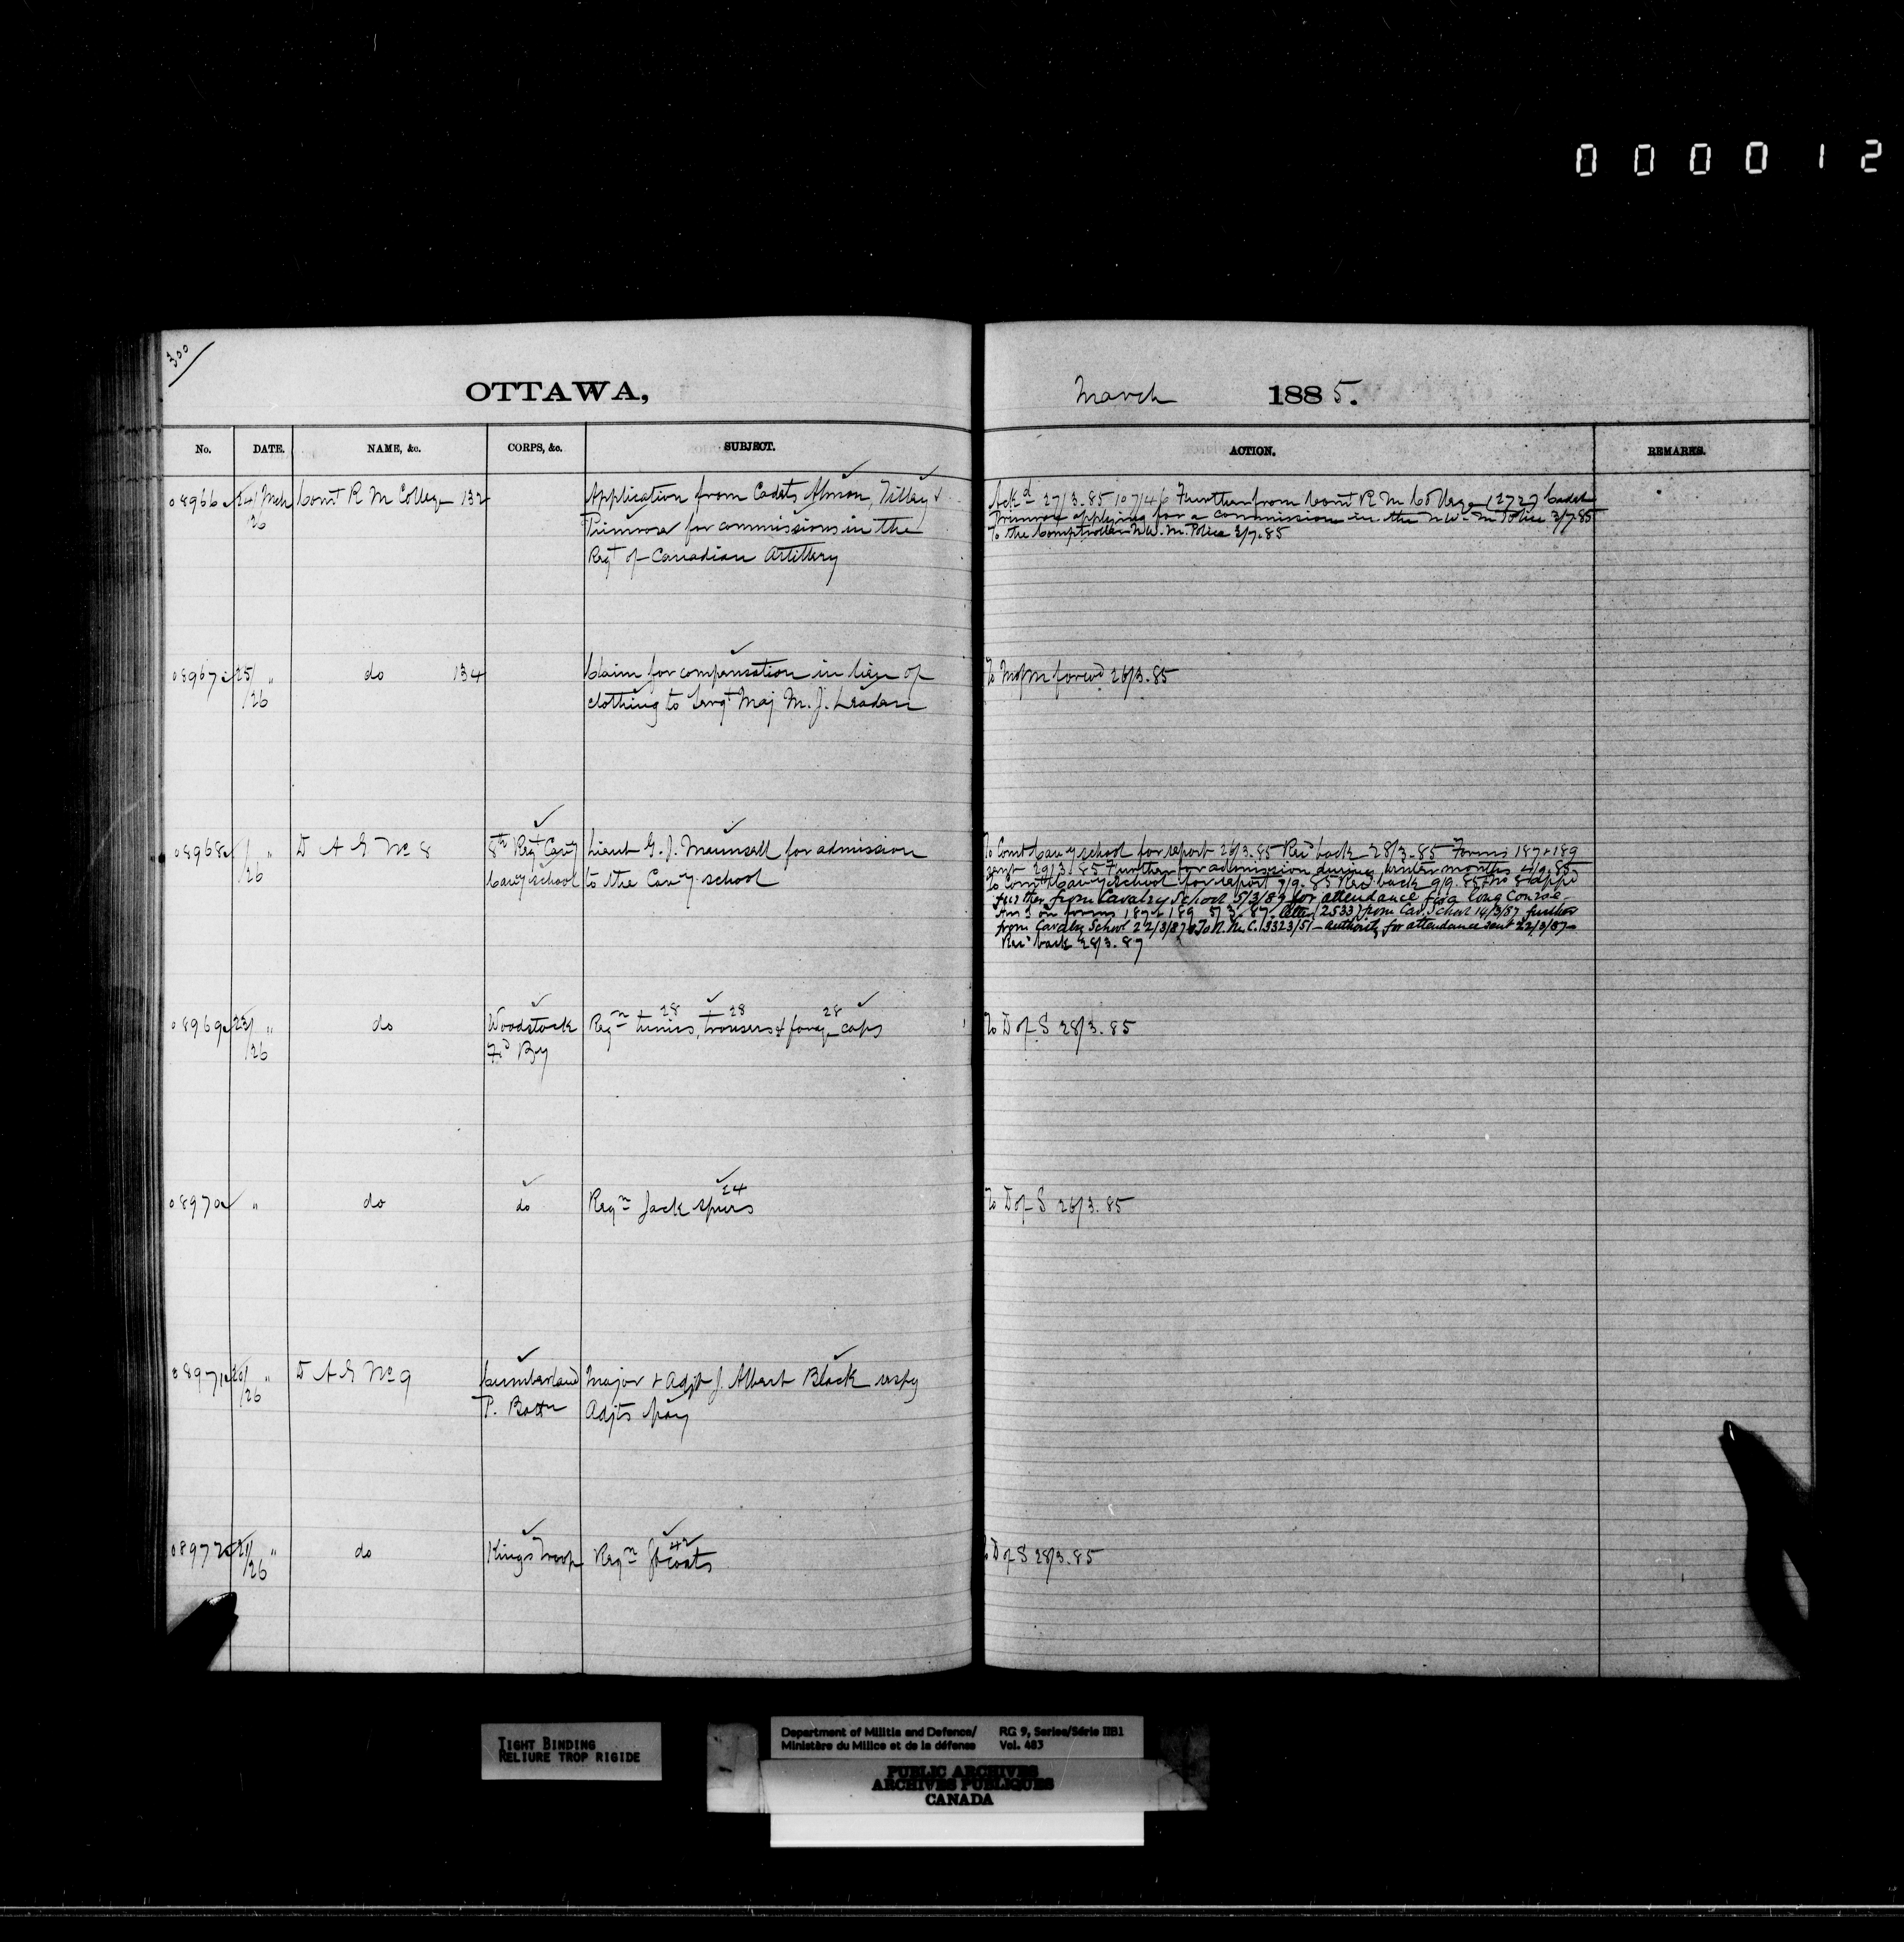 000012
300
OTTAWA,
March 1885.
No. DATE. NAME, &c. CORPS, &c. SUBJECT. ACTION. REMARKS.
08966 24/Mch Comt R M College 132 Application from Cadets Almon, Tilley &
/26 Primrose for commissions in the
Regt of Canadian Artillery
Ackd 27/3.85 10746 Further from Comt R M College 12727 Cadet
Primrose applying for a commission in the N.W. M Police 3/7.85
To the Comptroller N.W. M. Police 3/7.85
08967 25/ " do 134 Claim for compensation in lieu of
/26 clothing to Sergt Maj M. J. Leaden
forwd 26/3.85
08968 / " D A G No 8 8th Regt Cavy Lieut G. J. Maunsell for admission
/26 Cavy school to the Cavy school
To Comt Cavy school for report 26/3.85 Recd back 28/3.85 Forms 187 & 189
sent 29/3.85 Further for admission during winter months 4/9.85
To Comt Cavy school for report 7/9.85 Recd back 9/9.85
further from Cavalry School 5/3/87 for attendance for a long course
on forms 187 & 189 5/3.87 letter (2533) from Cav. School 14/3/87 further
from Cavalry School 22/3/87 To R.M.C. 13323/51 - authority for attendance sent 22/3/87
Recd back 28/3.87
08969 23/ " do Woodstock Reqn 28 tunics, 28 trousers & 28 forage caps
/26 Fd By
To D of S 28/3.85
08970 " do do Reqn Jack spurs 24
To D of S 26/3.85
08971 20/ " D A G No 9 Cumberland Major & Adjt J. Albert Black respg
/26 P. Battn Adjts pay
08972 21/ " do Kings Troop Reqn 42 Gt coats
/26
To D of S 28/3.85
TIGHT BINDING
RELIURE TROP RIGIDE
Department of Militia and Defence/ RG 9, Series/Série IIB1
Ministère du Milice et de la défense Vol. 483
PUBLIC ARCHIVES
ARCHIVES PUBLIQUES
CANADA